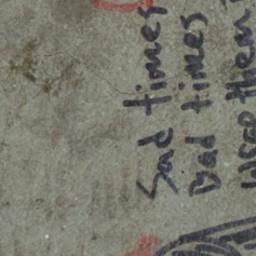 Sad times
Bad times
them